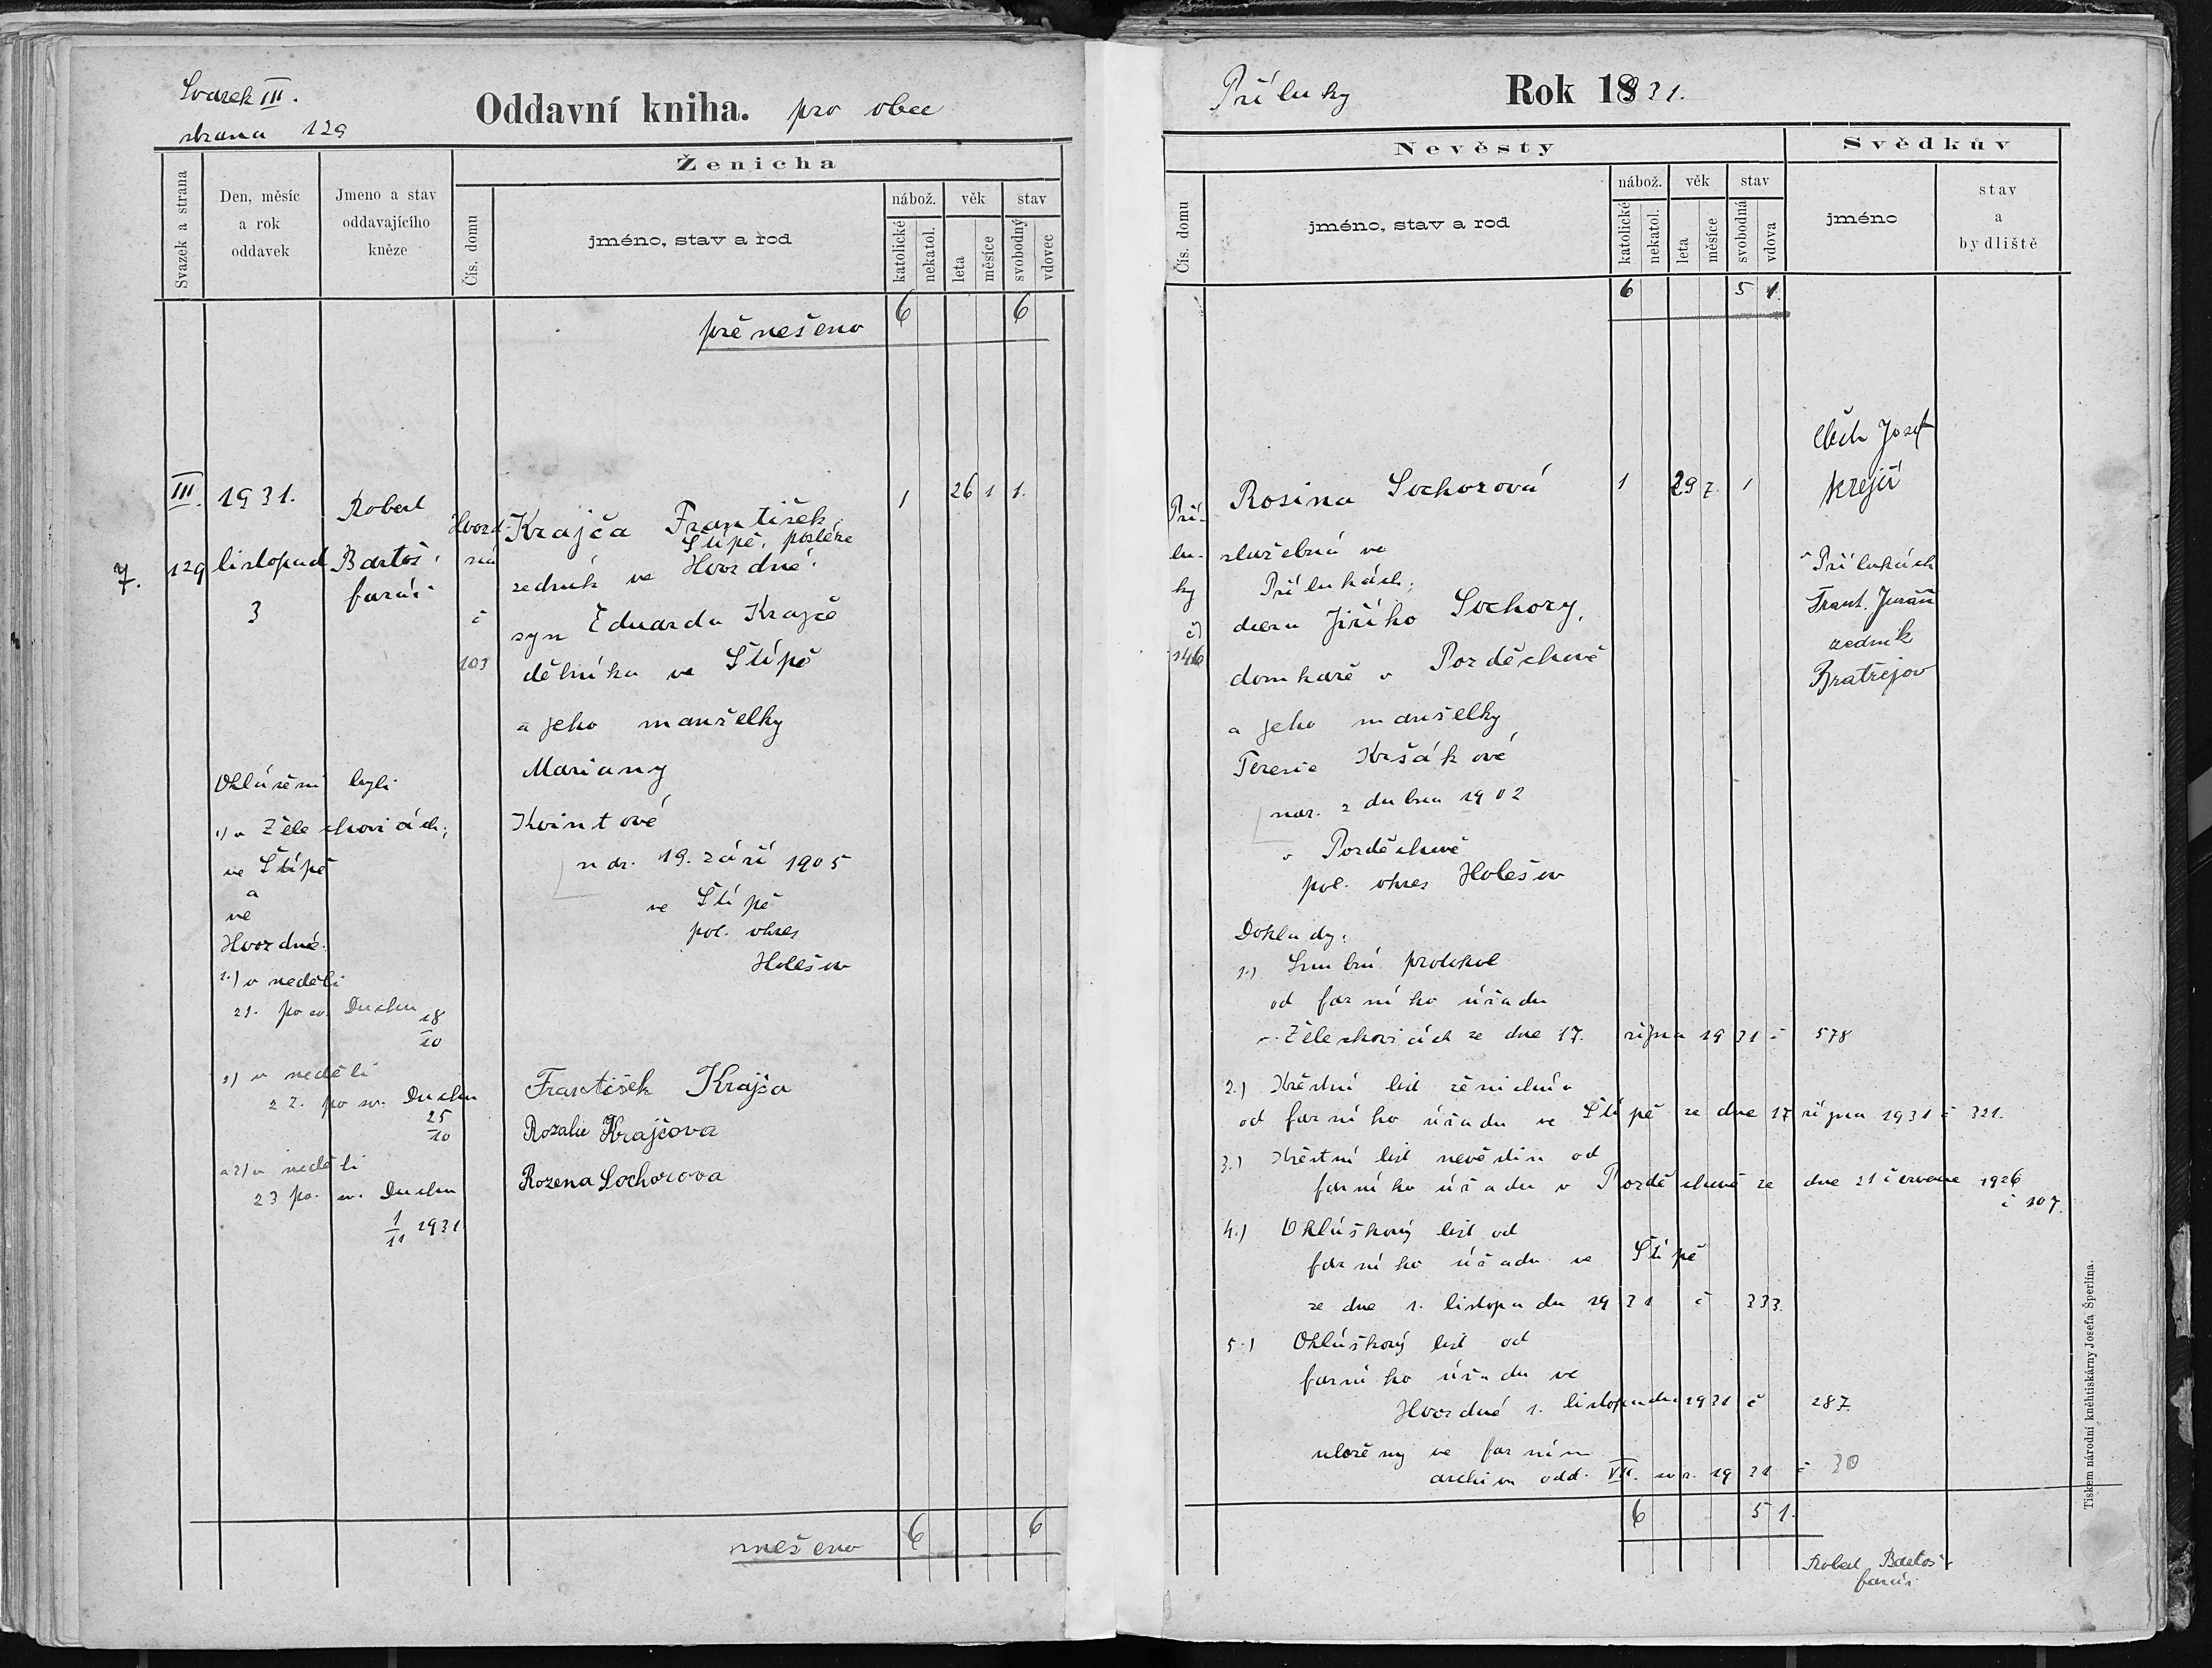 Svazek III.
strana 129
Oddavní kniha. pro obec
Svazek a strana
Den, měsíc
a rok
oddavek
Jmeno a stav
oddavajícího
kněze
Ženicha
Čís. domu
jméno, stav a rod
nábož.
věk
stav
katolické
nekatol.
leta
měsíce
svobodný
vdovec
přenešeno 6 6
7.
III.
129
1931.
listopad
3
Robert
Bartoš,
farář
Hvozd-
ná
č
103
Krajča František,
Štípě, posléze
zedník ve Hvozdné.
1 26 1 1.
syn Eduarda Krajče
dělníka ve Štípě
a jeho manželky
Mariany
Kvintové
nar. 19. září 1905
ve Štípě
pol. okres
Holešov
Ohlášeni byli
1) v Želechovicích,
ve Štípě
a
ve
Hvozdné.
1.) v neděli
21. po sv. Duchu 18/10
2) v neděli
22. po sv. Duchu
25/10
a 3) v neděli
23 po. sv. Duchu
1/11 1931
František Krajča
Rozalie Krajčova
Rozena Sochorova
6 6
Příluky
Rok 18931.
Nevěsty
Svědkův
Čís. domu
jméno, stav a rod
nábož.
věk
stav
katolické
nekatol.
leta
měsíce
svobodná
vdova
jméno
stav
a
bydliště
6 5 1.
Pří-
lu-
ky
č)
146
Rosina Sochorová
1 29 7. 1
služebná ve
Přílukách,
dcera Jiřího Sochory,
domkaře v Pozděchově
a jeho manželky
Terezie Kršákové
nar. 2 dubna 1902
v Pozděchově
pol. okres Holešov
Josef
krejčí
v Přílukách
Frant. Juráň
zedník
Bratřejov
Doklady:
1.) Snubní protokol
od farního úřadu
v Želechovicích ze dne 17. října 1931 č 578
2.) Křestní list ženichův
od farního úřadu ve Štípě ze dne 17 října 1931 č 321.
3.) Křestní list nevěstin od
farního úřadu v Pozděchově ze dne 21 července 1926
č 107.
4.) Ohláškový list od
farního úřadu ve Štípě
ze dne 1. listopadu 1931 č 333.
5.) Ohláškový list od
farního úřadu ve
Hvozdné 1. listopadu 1931 č 287
uloženy ve farním
archivu odd. VII. 1931 č 30
6 5 1.
Robert Bartoš
farář.
Tiskem národní kněhtiskárny Josefa Šperlína.